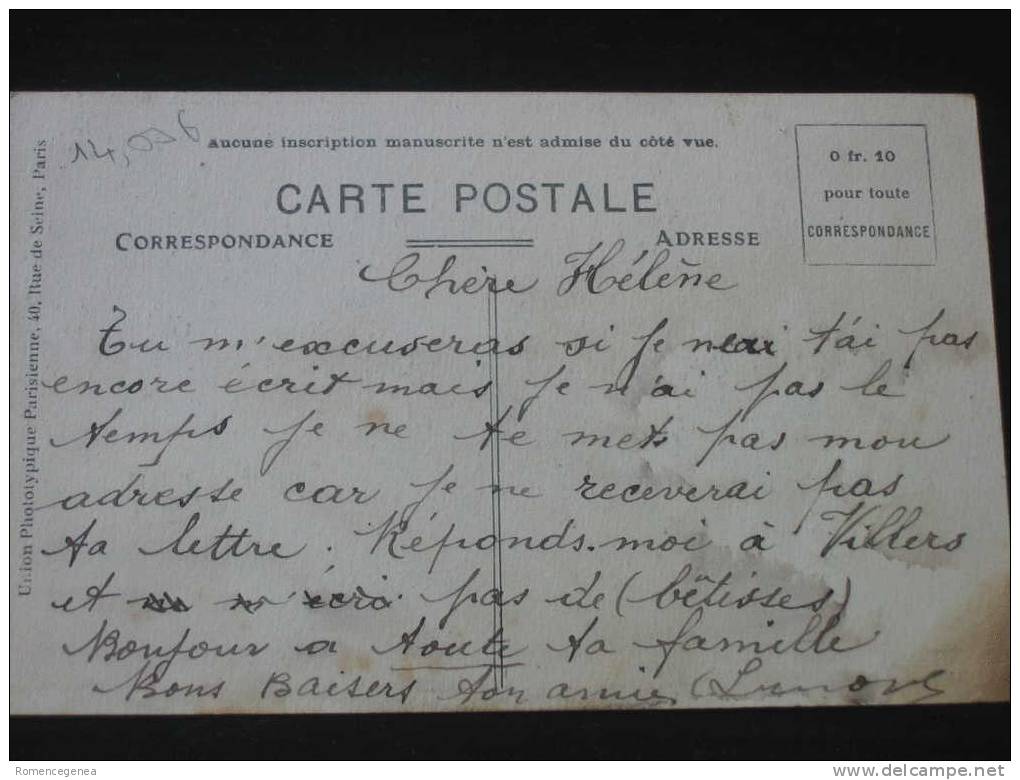 14,036
Aucune inscription manuscrite n'est admise du côté vue.
CARTE POSTALE
CORRESPONDANCE
ADRESSE
0 fr. 10
pour toute
CORRESPONDANCE
Union Phototypique Parisienne, 40, Rue de Seine, Paris
Chère Hélène
Tu m'excuseras si je t'ai pas
encore écrit mais je n'ai pas le
temps je ne te mets pas mon
adresse car je ne receverai pas
ta lettre. Réponds-moi à Villers
et pas de (bêtisses)
Bonjour a toute ta famille
Bons Baisers ton amie
Romencegenea
www.delcampe.net